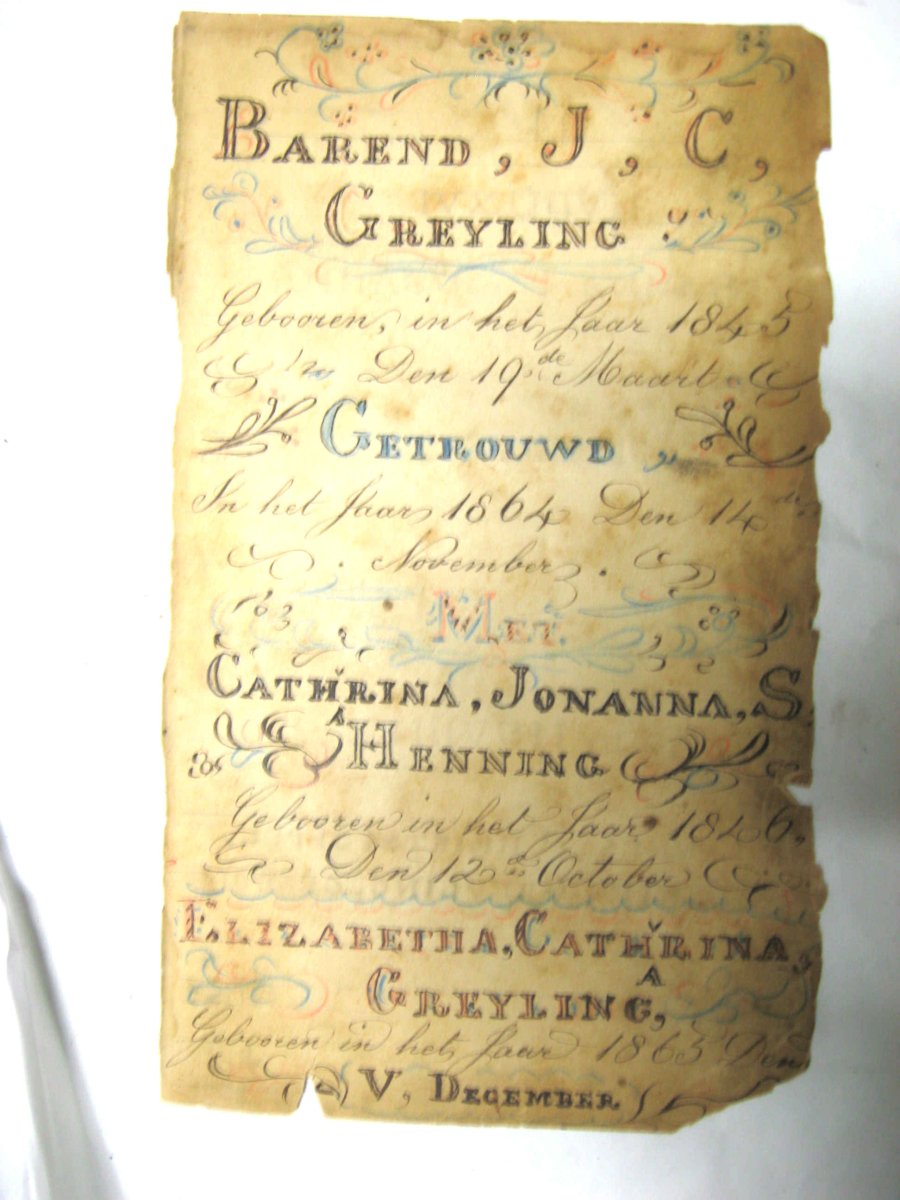 BAREND, J, C,
GREYLING
Gebooren, in het Jaar 1845
Den 19de Maart
GETROUWD,
In het Jaar 1864 Den 14de
November.
MET.
CATHRINA, JONANNA, S
A
HENNING
Gebooren in het Jaar 1846,
Den 12de October
ELIZABETHA, CATHRINA,
A
GREYLING,
Gebooren in het Jaar 1865 Den
V, DECEMBER